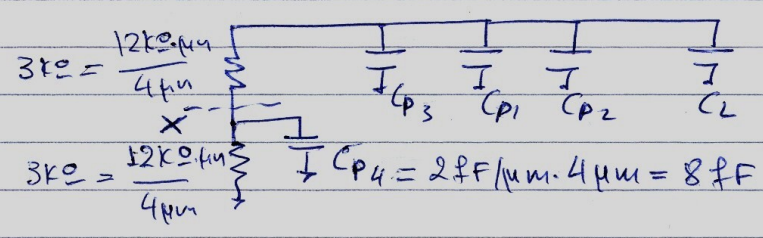 3kΩ = 12kΩ·μm / 4μm
Cp3 Cp1 Cp2 CL
X
3kΩ = 12kΩ·μm / 4μm
Cp4 = 2fF/μm · 4μm = 8fF